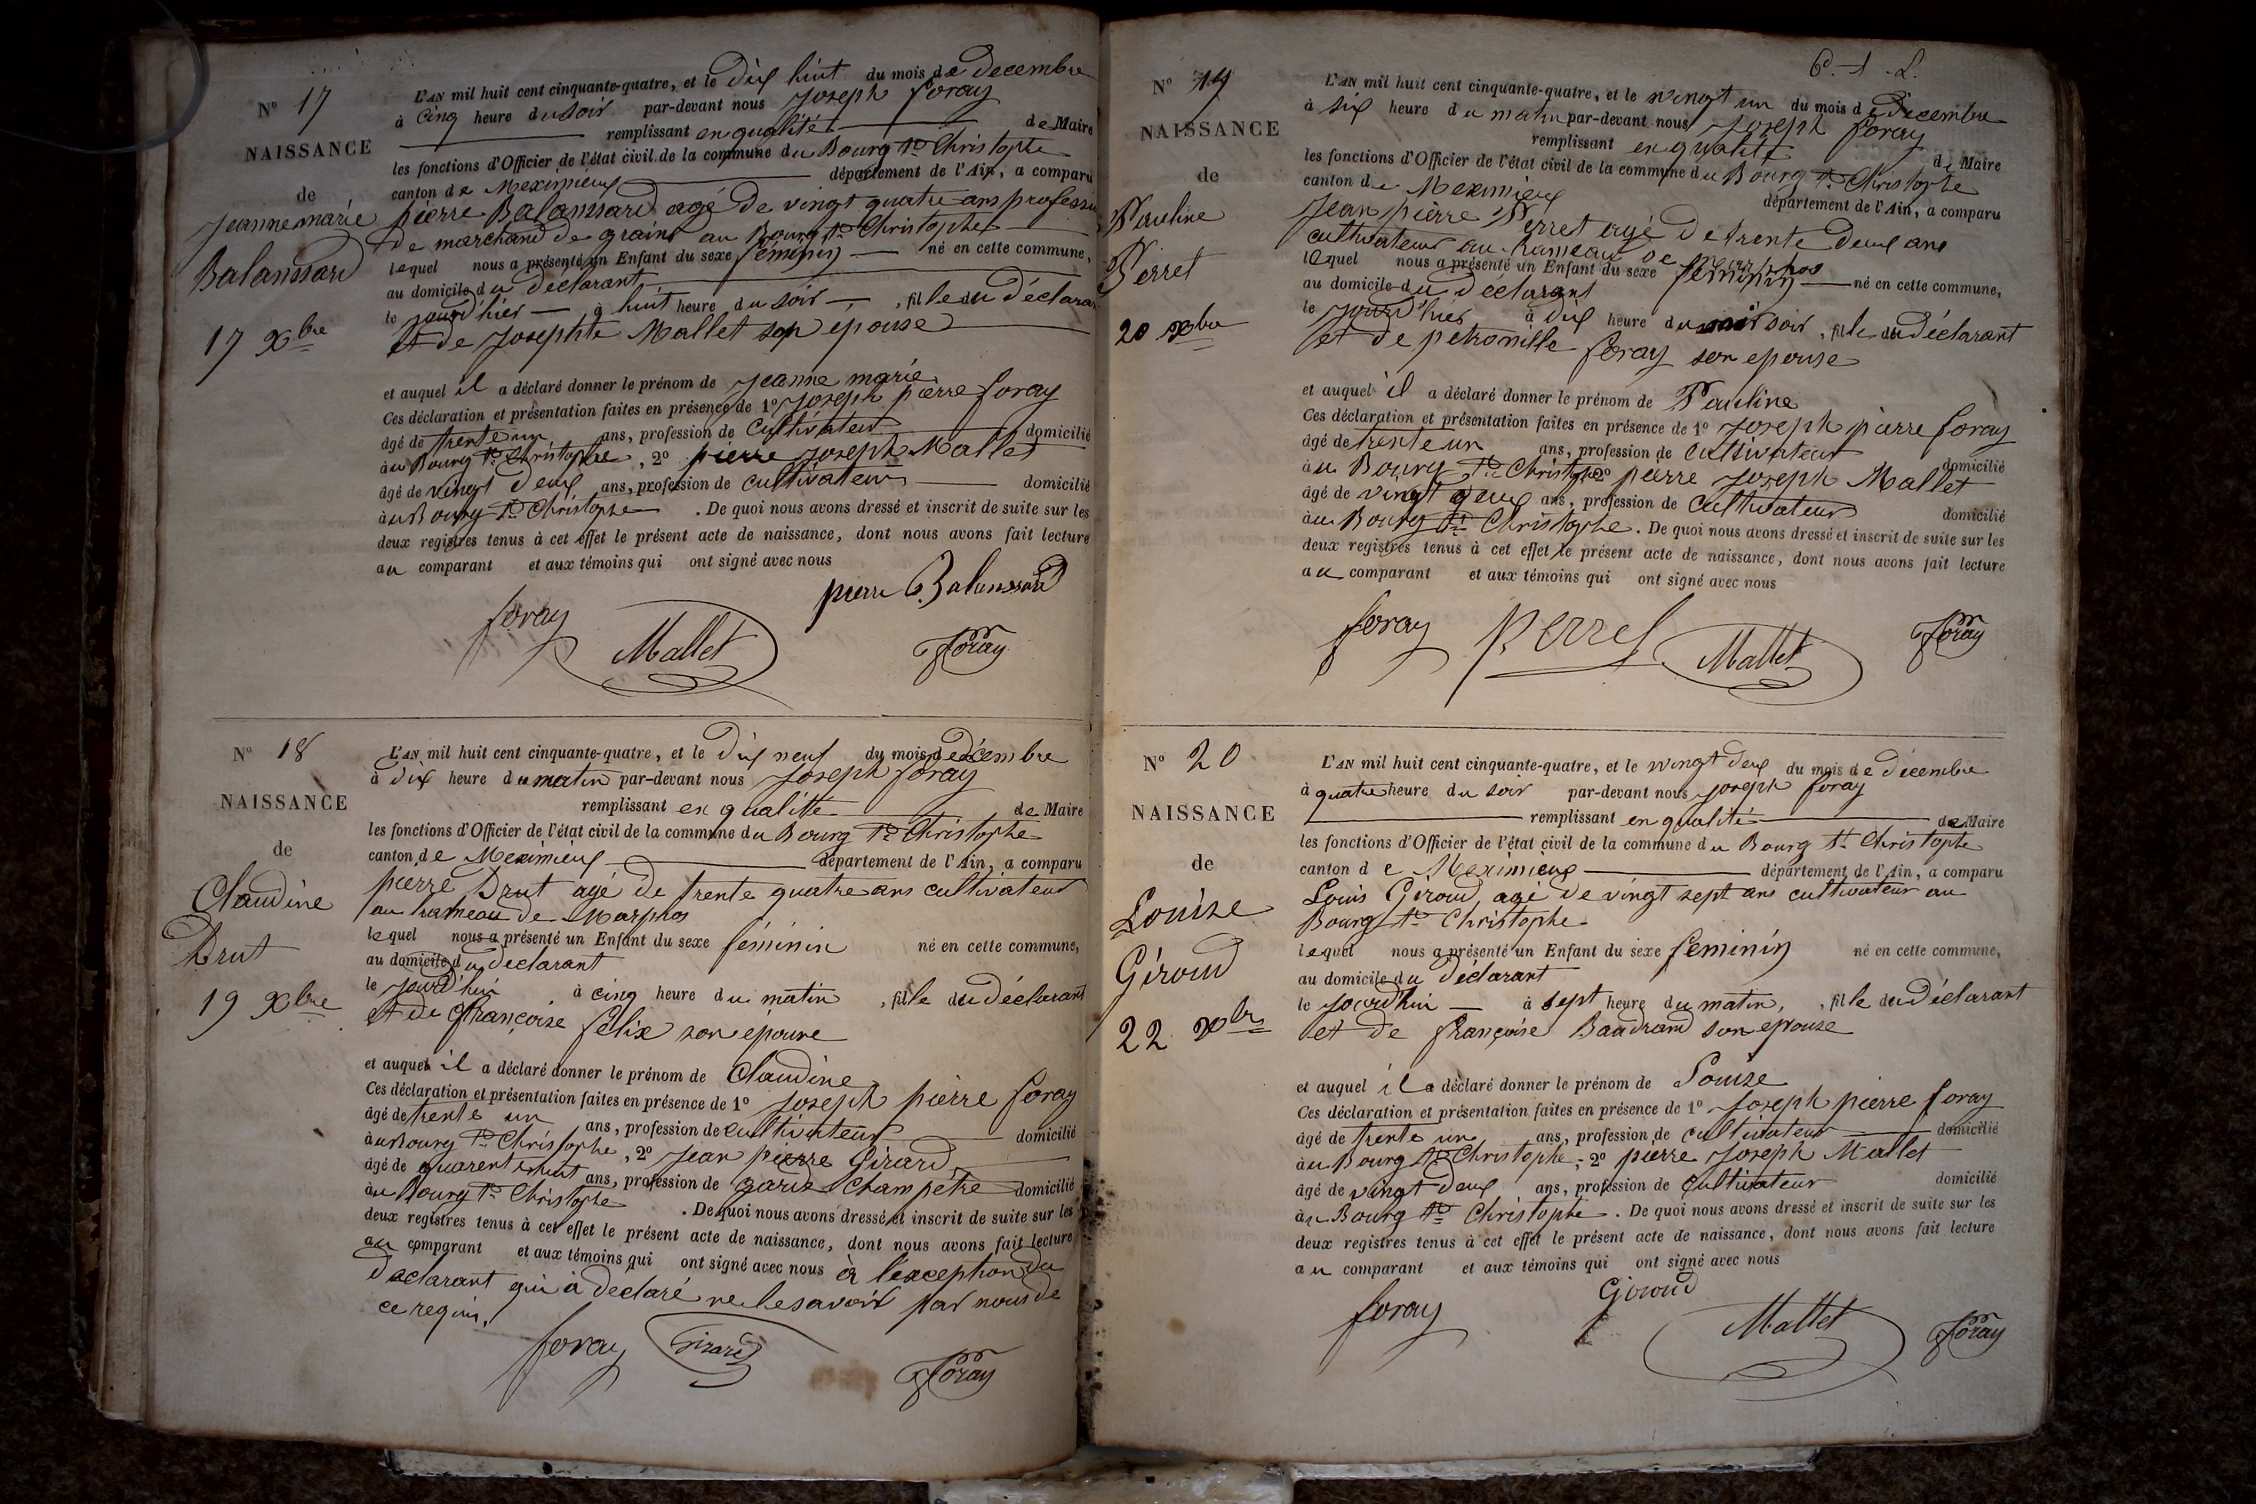 N° 17
NAISSANCE
de
Jeanne marie
Balanssard
17 Xbre
L'AN mil huit cent cinquante-quatre, et le dix huit du mois de decembre
à cinq heure du soir par-devant nous Joseph foray
remplissant en qualité de Maire
les fonctions d'Officier de l'état civil de la commune du Bourg St Christophe
canton de Meximieux département de l'Ain, a comparu
pierre Balanssard agé de vingt quatre ans profession
de marchand de grains au Bourg St Christophe
lequel nous a présenté un Enfant du sexe féminin né en cette commune,
au domicile du declarant
le jourd'hier à huit heure du soir, fille du déclarant
et de Josephte Mallet son épouse
et auquel il a déclaré donner le prénom de Jeanne marie
Ces déclaration et présentation faites en présence de 1° Joseph pierre foray
âgé de trente un ans, profession de Cultivateur domicilié
à u Bourg St Christophe, 2° pierre Joseph Mallet
âgé de vingt deux ans, profession de cultivateur domicilié
à u Bourg St Christophe . De quoi nous avons dressé et inscrit de suite sur les
deux registres tenus à cet effet le présent acte de naissance, dont nous avons fait lecture
au comparant et aux témoins qui ont signé avec nous
pierre Balanssard
foray Mallet foray
N° 18
NAISSANCE
de
Claudine
Drut
19 Xbre
L'AN mil huit cent cinquante-quatre, et le dix neuf du mois de décembre
à dix heure du matin par-devant nous Joseph foray
remplissant en qualité de Maire
les fonctions d'Officier de l'état civil de la commune du Bourg St Christophe
canton de Meximieux département de l'Ain, a comparu
pierre Drut agé de trente quatre ans cultivateur
au hameau de Marphos
lequel nous a présenté un Enfant du sexe féminin né en cette commune,
au domicile du declarant
le jourd'hui à cinq heure du matin, fille du déclarant
et de françoise felix son épouse
et auquel il a déclaré donner le prénom de Claudine
Ces déclaration et présentation faites en présence de 1° Joseph pierre foray
âgé de trente un ans, profession de cultivateur domicilié
à u Bourg St Christophe, 2° Jean pierre Girard
âgé de quarent huit ans, profession de garde champétre domicilié
à u Bourg St Christophe . De quoi nous avons dressé et inscrit de suite sur les
deux registres tenus à cet effet le présent acte de naissance, dont nous avons fait lecture
au comparant et aux témoins qui ont signé avec nous à l'exception du
declarant qui à declaré ne le savoir par nous de
ce requis.
foray Girard foray
N° 19
NAISSANCE
de
Pauline
Perret
20 Xbre
L'AN mil huit cent cinquante-quatre, et le vingt un du mois de décembre
à six heure du matin par-devant nous Joseph foray
remplissant en qualité de Maire
les fonctions d'Officier de l'état civil de la commune du Bourg St Christophe
canton de Meximieux département de l'Ain, a comparu
Jean pierre Perret agé de trente deux ans
cultivateur au hameau de Marphos
lequel nous a présenté un Enfant du sexe féminin né en cette commune,
au domicile du déclarant
le jourd'hier à dix heure du soir, fille du déclarant
et de petronille foray son epouse
et auquel il a déclaré donner le prénom de Pauline
Ces déclaration et présentation faites en présence de 1° Joseph pierre foray
âgé de trente un ans, profession de cultivateur domicilié
à u Bourg St Christophe 2° pierre Joseph Mallet
âgé de vingt deux ans, profession de cultivateur domicilié
à u Bourg St Christophe. De quoi nous avons dressé et inscrit de suite sur les
deux registres tenus à cet effet le présent acte de naissance, dont nous avons fait lecture
au comparant et aux témoins qui ont signé avec nous
foray Perret Mallet foray
N° 20
NAISSANCE
de
Louise
Giroud
22 Xbre
L'AN mil huit cent cinquante-quatre, et le vingt deux du mois de décembre
à quatre heure du soir par-devant nous Joseph foray
remplissant en qualité de Maire
les fonctions d'Officier de l'état civil de la commune du Bourg St Christophe
canton de Meximieux département de l'Ain, a comparu
Louis Giroud, agé de vingt sept ans cultivateur au
Bourg St Christophe
lequel nous a présenté un Enfant du sexe feminin né en cette commune,
au domicile du déclarant
le jourd'hui à sept heure du matin, fille du déclarant
et de françoise Baudrand son epouse
et auquel il a déclaré donner le prénom de Louise
Ces déclaration et présentation faites en présence de 1° Joseph pierre foray
âgé de trente un ans, profession de cultivateur domicilié
à u Bourg St Christophe, 2° pierre Joseph Mallet
âgé de vingt deux ans, profession de Cultivateur domicilié
à u Bourg St Christophe . De quoi nous avons dressé et inscrit de suite sur les
deux registres tenus à cet effet le présent acte de naissance, dont nous avons fait lecture
au comparant et aux témoins qui ont signé avec nous
foray Giroud Mallet foray